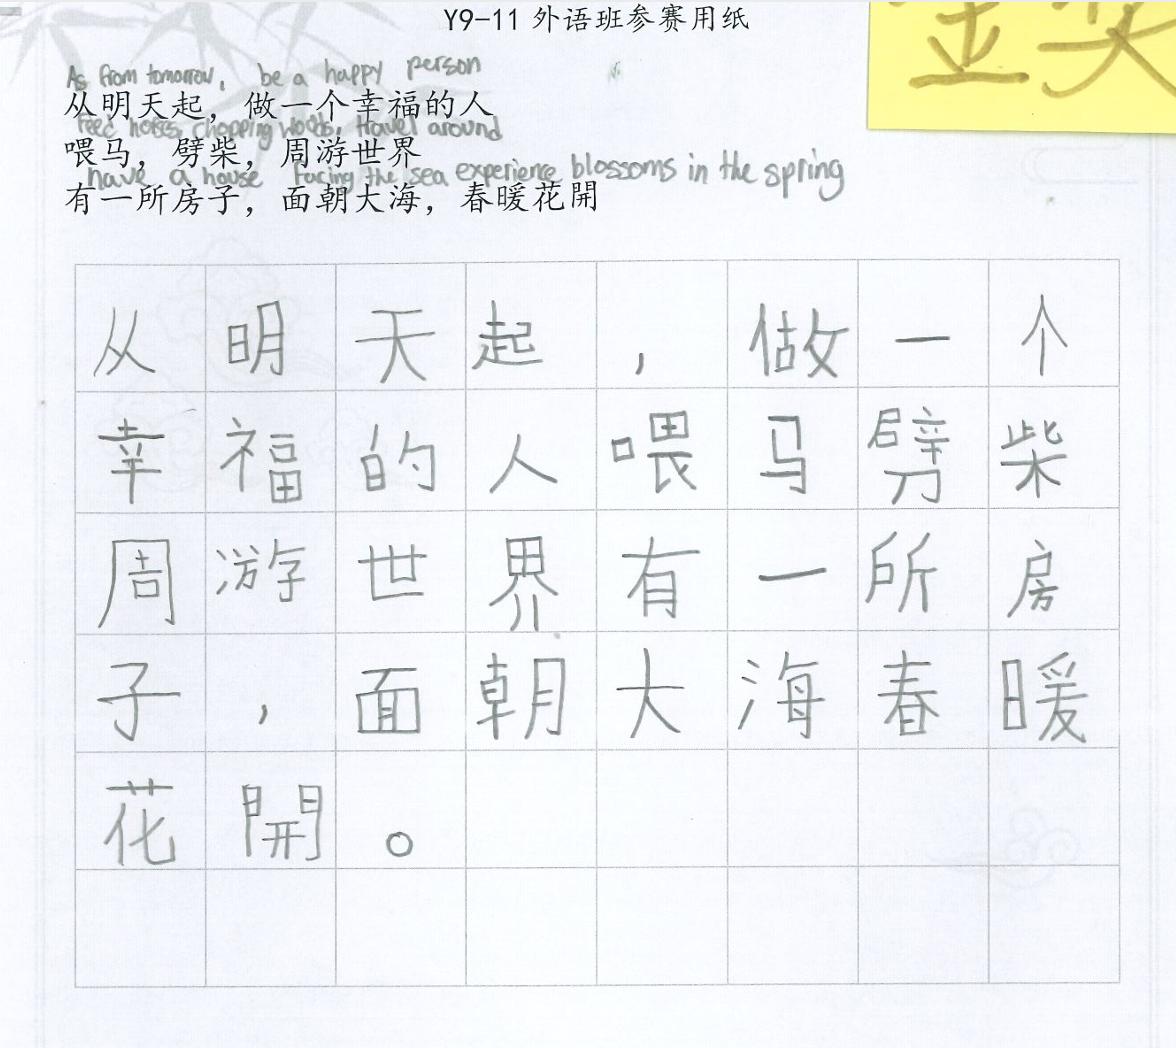 Y9-11 外语班参赛用纸
金奖
As from tomorrow, be a happy person
从明天起，做一个幸福的人
Feed horses, chopping woods, travel around
喂马，劈柴，周游世界
have a house facing the sea experience blossoms in the spring
有一所房子，面朝大海，春暖花開
从明天起，做一个
幸福的人喂马劈柴
周游世界有一所房
子，面朝大海春暖
花開。